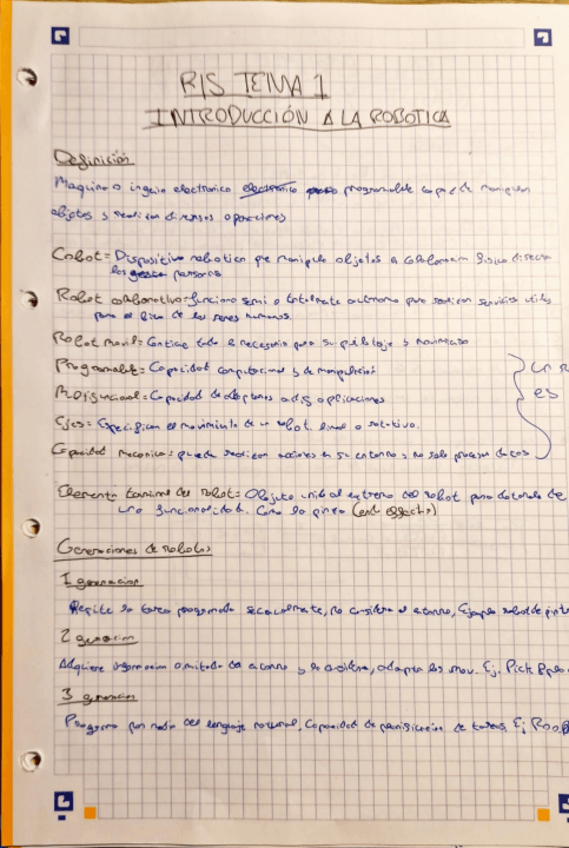 RIS TEMA 1
INTRODUCCIÓN A LA ROBOTICA
Definición
Maquina o ingenio electronico programable capaz de manipular
objetos y realizar diversas operaciones
Cobot = Dispositivo robotico que manipula objetos en colaboracion fisica directa
los personas
Robot colaborativo = funciona semi o totalmente autonomo para realizar servicios utiles
para el bien de los seres humanos.
Robot movil = Contiene todo lo necesario para su pilotaje y movimiento
Programable = Capacidad computacional y de manipulación
Capacidad de adaptarse a dis aplicaciones
es
Ejes = Especifican el movimiento de un robot. lineal o rotativo.
Capacidad mecanica = puede realizar acciones en su entorno y no solo procesar datos
Elemento terminal del robot = Objeto unido al extremo del robot para dotarlo de
una funcionalidad. Como la pinza (end effector)
Generaciones de robots
1 generacion
Repite la tarea programada secuencialmente, no considera el entorno, Ejemplo robot de
2 generacion
Adquiere informacion limitada del entorno y lo analiza, adapta los mov. Ej. Pick &
3 generacion
Programa por medio del lenguaje natural, Capacidad de planificacion de tareas, Ej